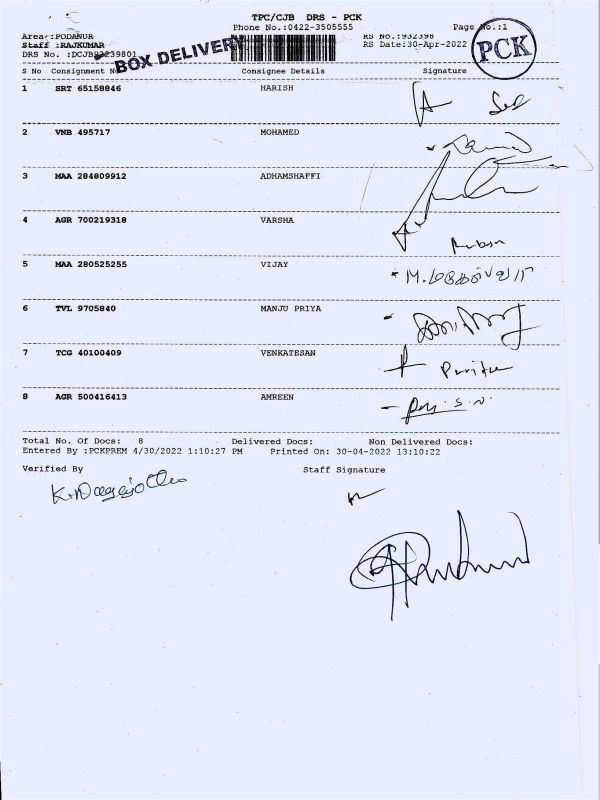 TPC/CJB DRS - PCK
Phone No.:0422-3505555 Page No.:1
Area :PODANUR RS No.:932398
Staff :RAJKUMAR RS Date:30-Apr-2022
DRS No. :DCJB93239801
BOX DELIVERY
PCK
S No Consignment No Consignee Details Signature
1 SRT 65158846 HARISH
2 VNB 495717 MOHAMED
3 MAA 284809912 ADHAMSHAFFI
4 AGR 700219318 VARSHA
5 MAA 280525255 VIJAY
6 TVL 9705840 MANJU PRIYA
7 TCG 40100409 VENKATESAN
8 AGR 500416413 AMREEN
Total No. Of Docs: 8 Delivered Docs: Non Delivered Docs:
Entered By :PCKPREM 4/30/2022 1:10:27 PM Printed On: 30-04-2022 13:10:22
Verified By Staff Signature